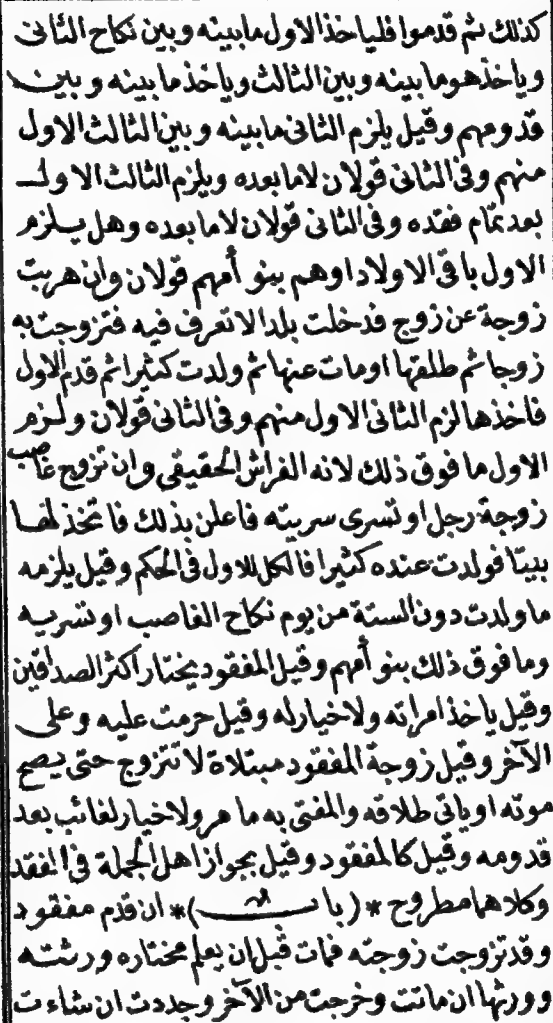 كذلك ثم قدموا فلياخذ الاول ما بينه وبين نكاح الثانى
وياخذ هو ما بينه وبين الثالث وياخذ ما بينه وبين
قدومهم وقيل يلزم الثانى ما بينه وبين الثالث الاول
منهم وفى الثانى قولان لا ما بعده ويلزم الثالث الاول
بعد تمام فقده وفى الثانى قولان لا ما بعده وهل يلزم
الاول باقى الاولاد او هم بنو أمهم قولان وان هربت
زوجة عن زوج فدخلت بلدا لا تعرف فيه فتزوجت به
زوجا ثم طلقها او مات عنها ثم ولدت كثيرا ثم قدم الاول
فاخذها لزم الثانى الاول منهم وفى الثانى قولان ولزم
الاول ما فوق ذلك لانه الفراش الحقيقي وان تزوج غاصب
زوجة رجل او تسرى سريته فاعلن بذلك فاتخذ لها
بيتا فولدت عنده كثيرا فالكل للاول فى الحكم وقيل يلزمه
ما ولدت دون الستة من يوم نكاح الغاصب او تسريه
وما فوق ذلك بنو أمهم وقيل المفقود يختار اكثر الصداقين
وقيل ياخذ امراته ولا خيار له وقيل حرمت عليه وعلى
الآخر وقيل زوجة المفقود مبتلاة لا تتزوج حتى يصح
موته او ياتى طلاقه والمفتى به ما مر ولا خيار لغائب بعد
قدومه وقيل كالمفقود وقيل بجواز اهل الجملة فى الفقد
وكلاهما مطروح *(باب)* ان قدم مفقود
وقد تزوجت زوجته فمات قبل ان يعلم مختاره ورثته
وورثها ان ماتت وخرجت من الآخر وجددت ان شاءت